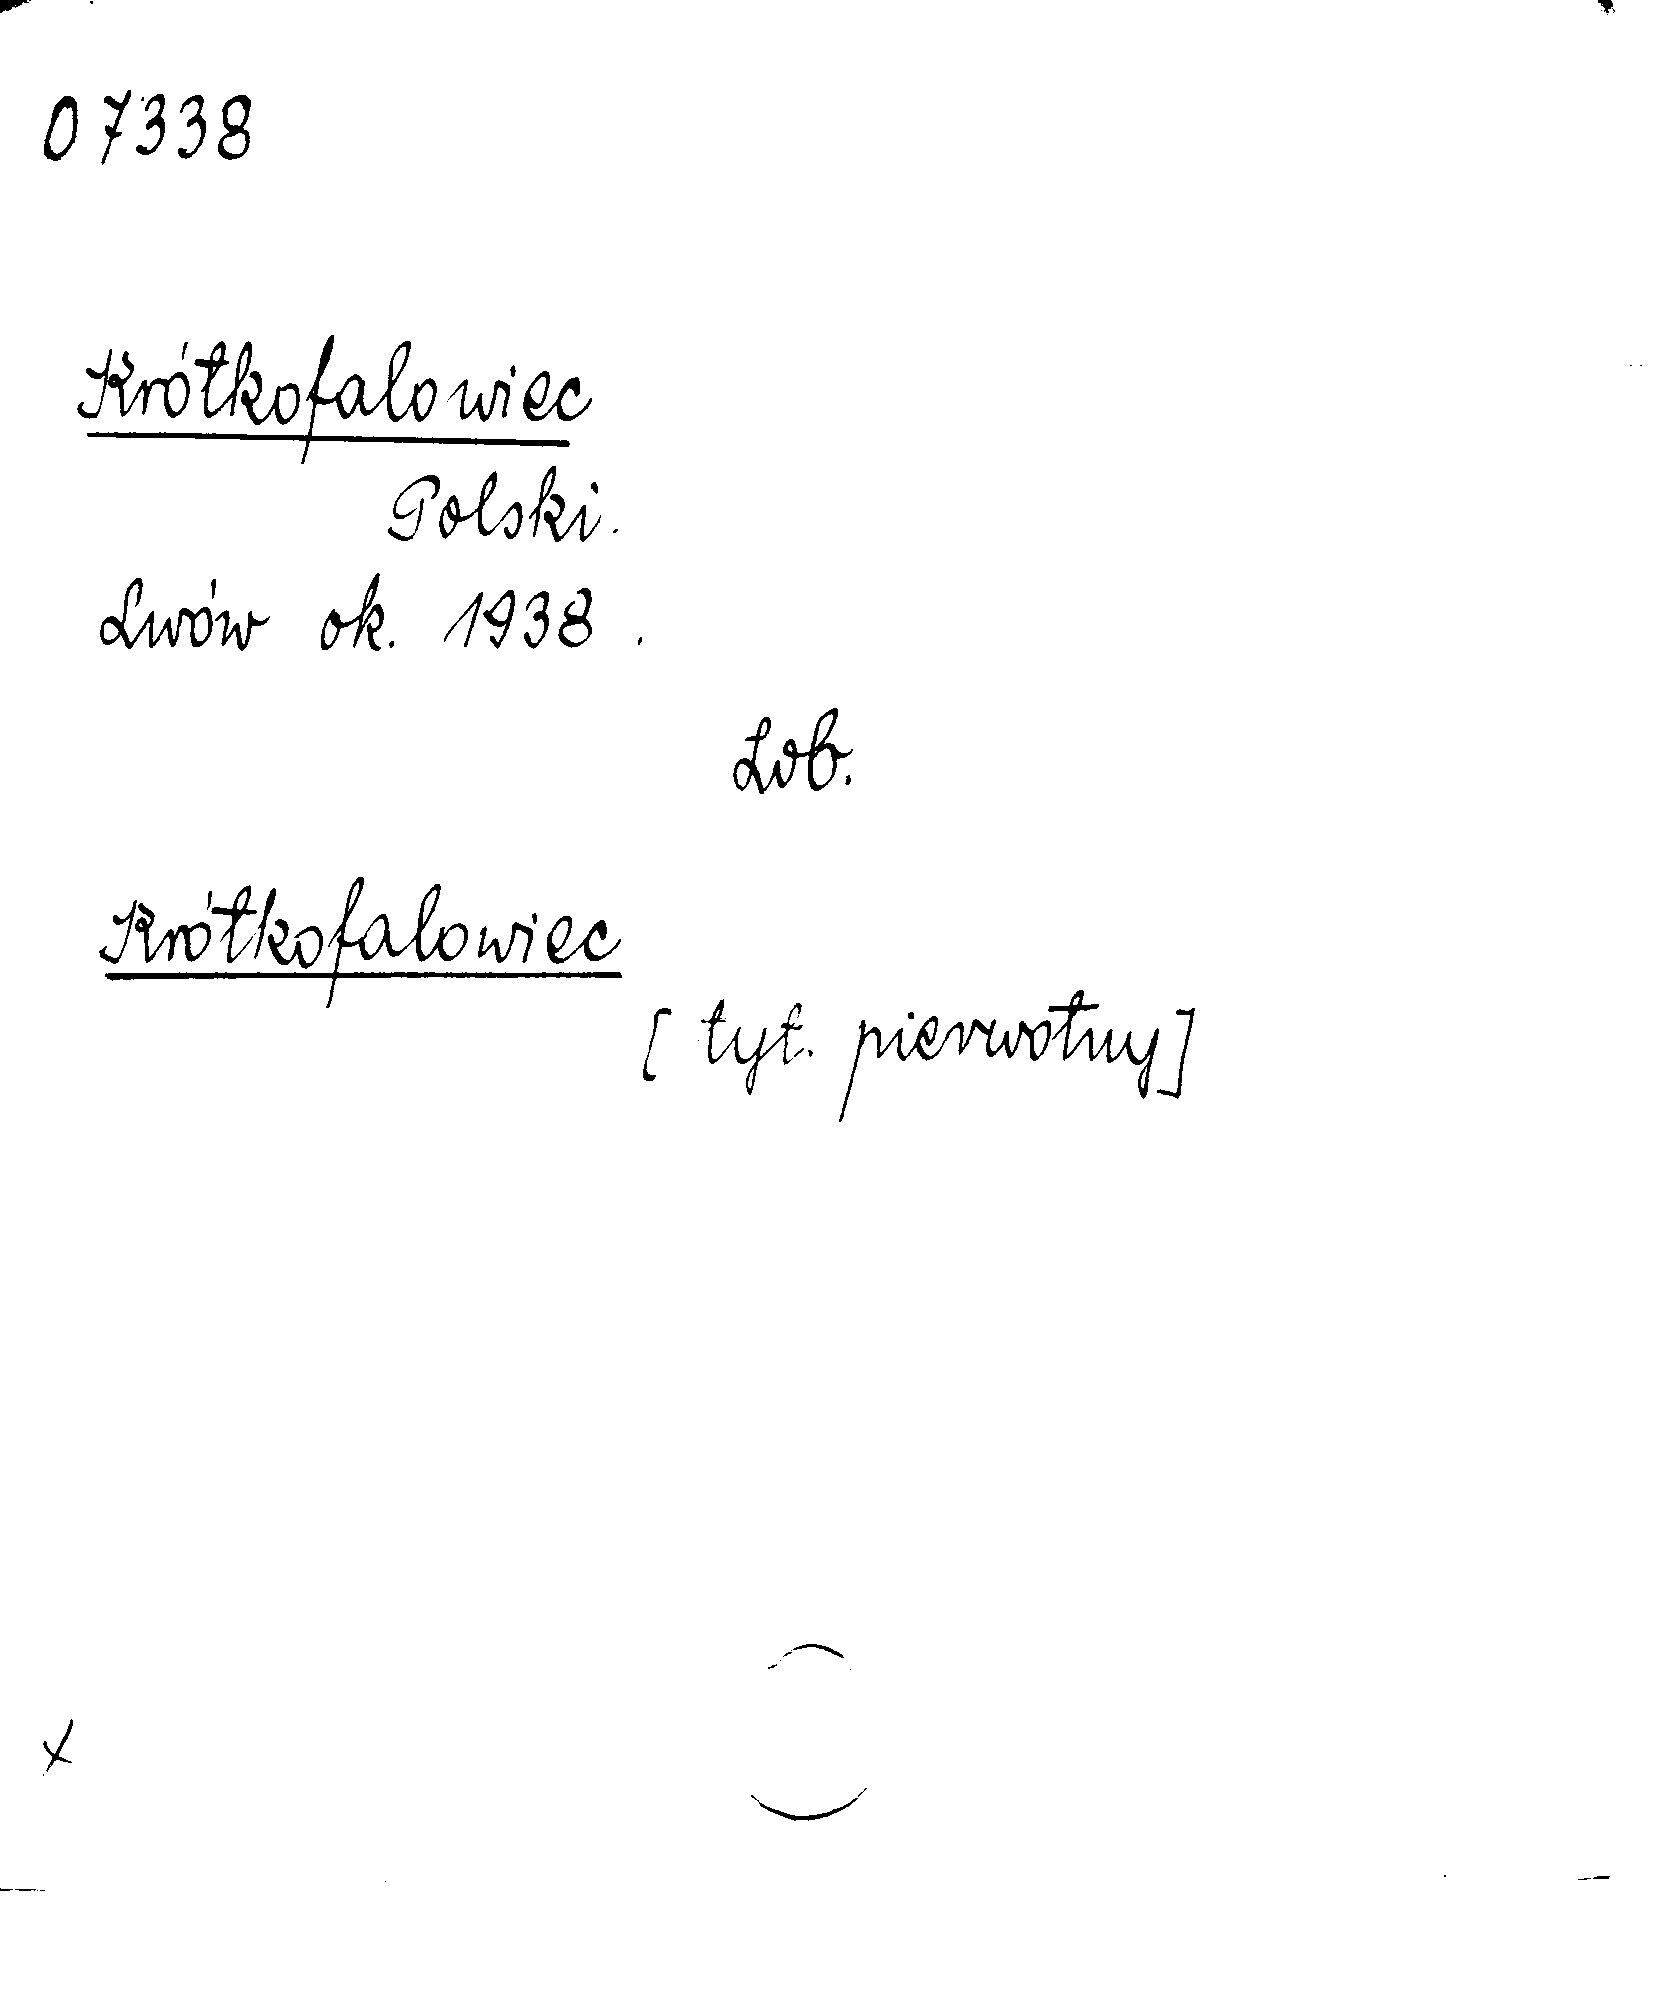 07338
Krótkofalowiec
Polski.
Lwów ok. 1938.
Zob.
Krótkofalowiec
[tyt. pierwotny]
x